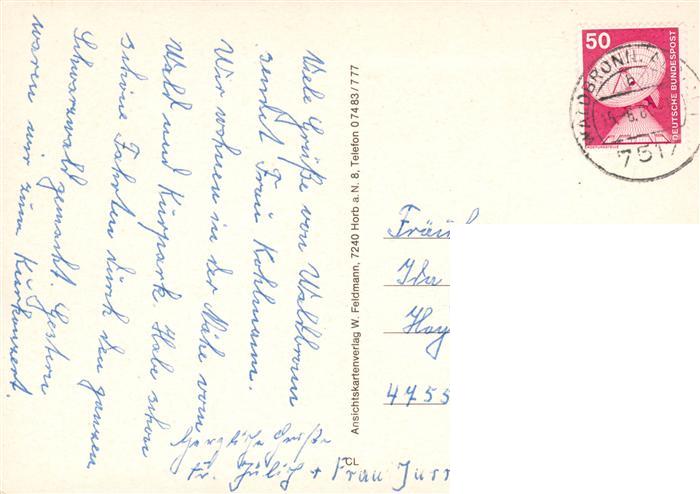 Viele Grüße von Waldbronn
sendet Frau Kohlmann.
Wir wohnen in der Nähe vom
Wald und Kurpark. Habe schon
schöne Fahrten durch den ganzen
Schwarzwald gemacht. Gestern
waren wir zum Kurkonzert.
Herzliche Grüße
Fr. + Frau
Ansichtskartenverlag W. Feldmann, 7240 Horb a. N. 8, Telefon 07483/777
CL
50
DEUTSCHE BUNDESPOST
WALDBRONN
7517
Ida
4755